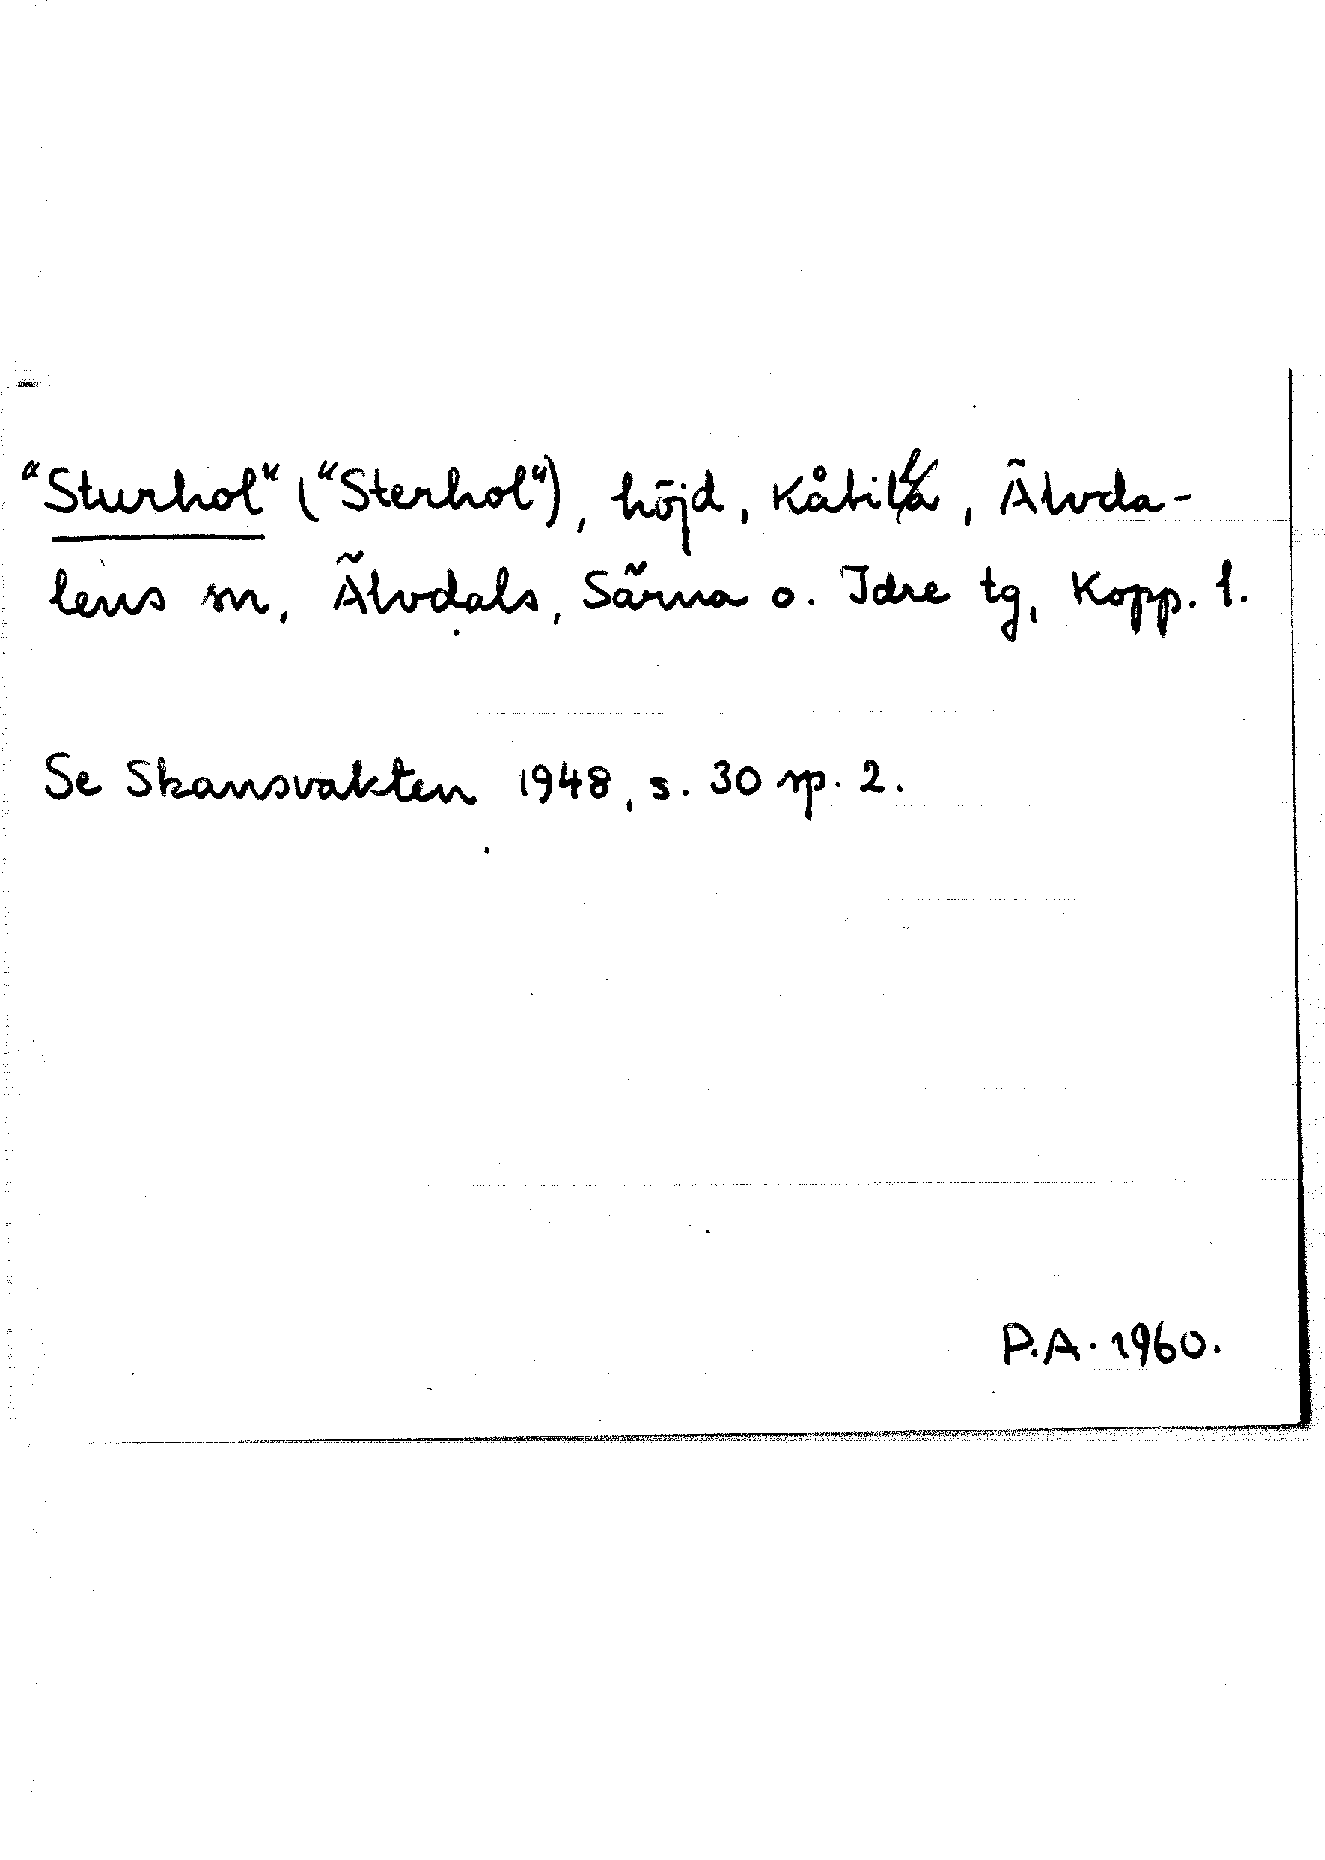 "Sturhol" ("Sterhol"), höjd, Kåtilla, Älvda-
lens sn, Älvdals, Särna o. Idre tg, Kopp. l.
Se Skansvakten 1948, s. 30 sp. 2.
P.A. 1960.